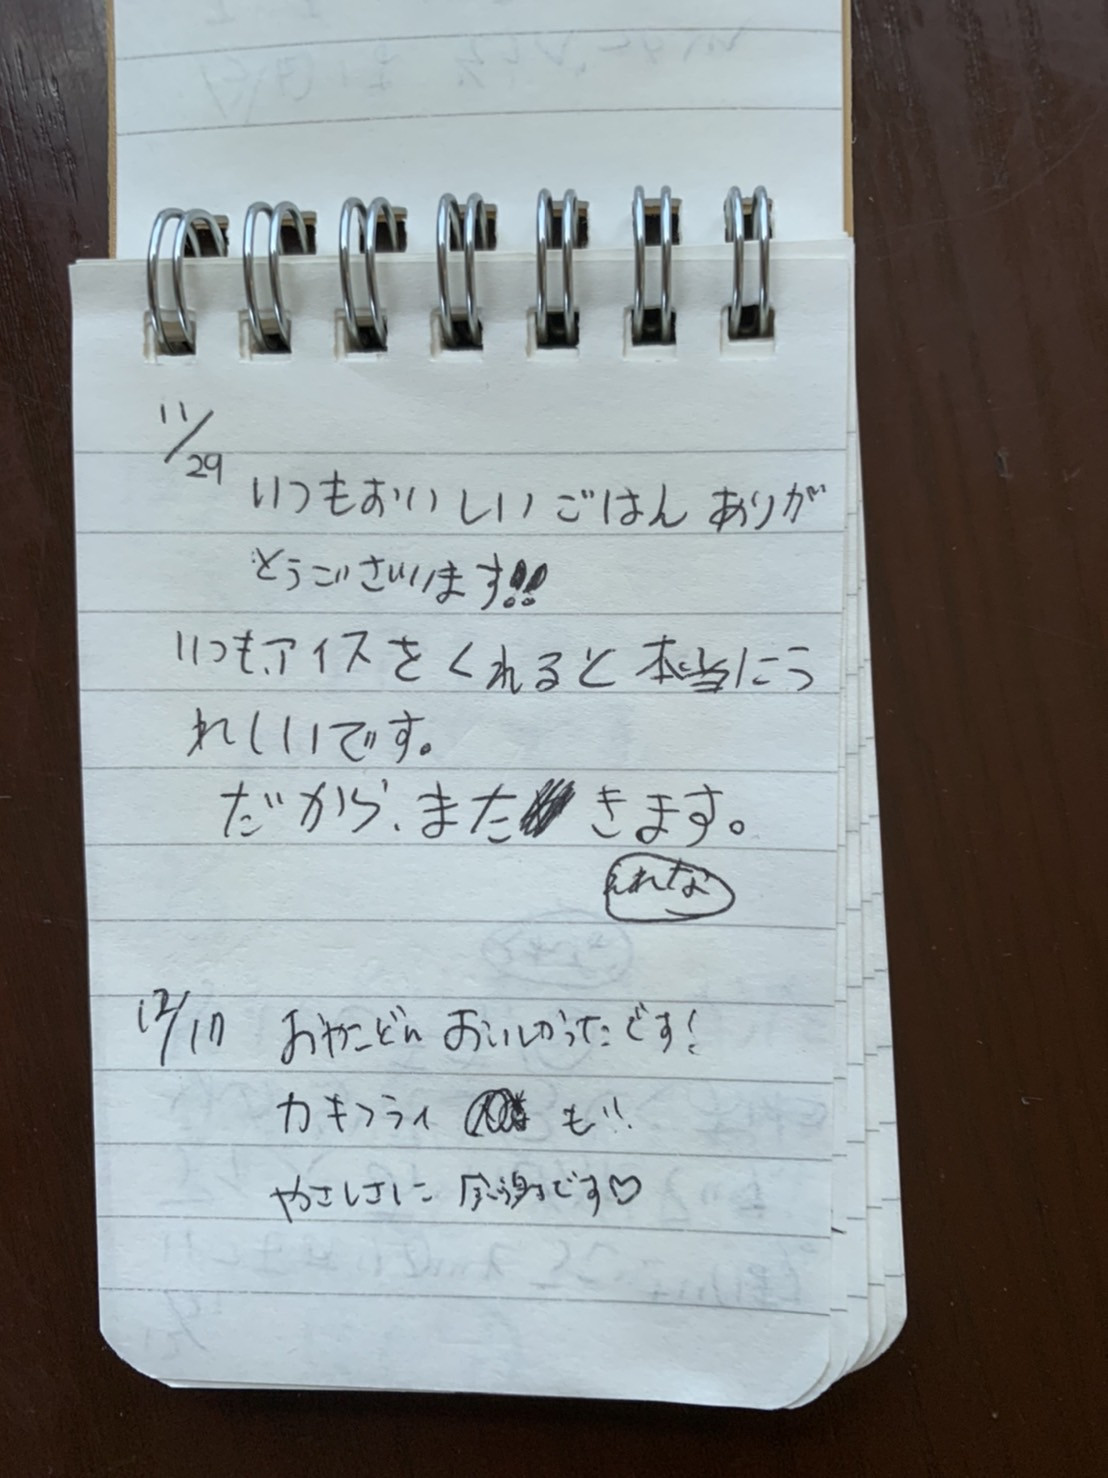 11/29
いつもおいしいごはん ありが
とうございます!!
いつも、アイスをくれると本当にう
れしいです。
だから、また きます。
12/17 おやこどん おいしかったです!
カキフライ も!!
やさしさに 感謝です♡